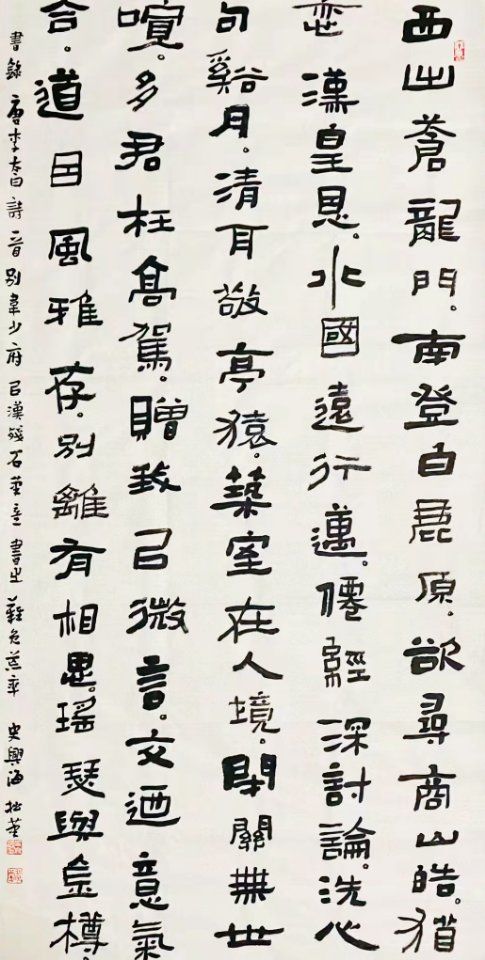 西出蒼龍門。南登白鹿原。欲尋商山皓。猶
戀漢皇恩。水國遠行邁。僊經深討論。洗心
句谿月。清耳敬亭猿。築室在人境。閉關無世
喧。多君枉高駕。贈我㠯微言。交迺意氣
合。道因風雅存。別離有相思。瑤瑟與金樽
書錄唐李太白詩一首別韋少府㠯漢殘石筆意書之難免草率 史興海拙筆